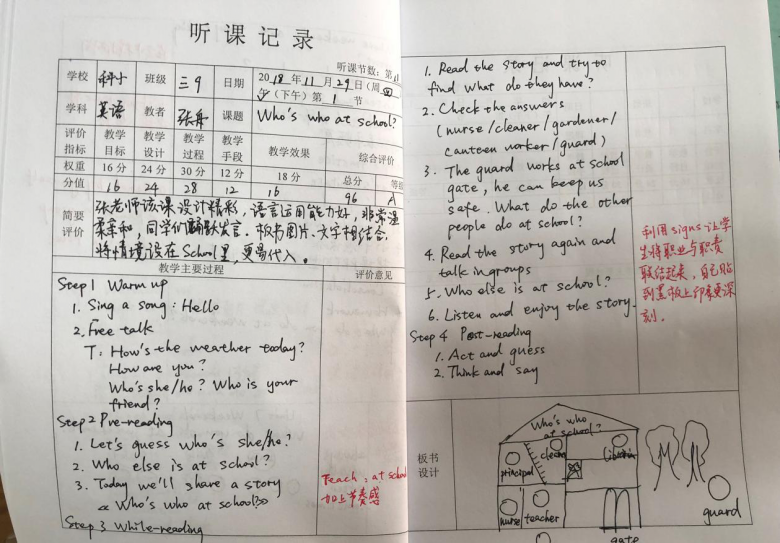 听课记录
听课节数：第1
学校 科小 班级 三9 日期 2018年11月29日（周四
午（下午）第1节
学科 英语 教者 张舟 课题 Who's who at school?
评价指标 教学目标 教学设计 教学过程 教学手段 教学效果 综合评价
权重 16分 24分 30分 12分 18分 总分 等级
分值 16 24 28 12 16 96 A
简要评价 张老师该课设计精彩，语言运用能力好，非常温
柔亲和，同学们踊跃发言。板书图片、文字相结合，
将情境设在School里，更易代入。
教学主要过程 评价意见
Step 1 Warm up
1. Sing a song: Hello
2. Free talk
T: How's the weather today?
How are you?
Who's she/he? Who is your
friend?
Step 2 Pre-reading
1. Let's guess who's she/he?
2. Who else is at school?
3. Today we'll share a story
《Who's who at school》
Step 3 While-reading
Teach: at school
加上节奏感
1. Read the story and try to
find what do they have?
2. Check the answers
(nurse/cleaner/gardener/
canteen worker/guard)
3. The guard works at school
gate, he can keep us
safe. What do the other
people do at school?
4. Read the story again and
talk in groups
5. Who else is at school?
6. Listen and enjoy the story.
Step 4 Post-reading
1. Act and guess
2. Think and say
利用signs让学
生将职业与职责
联结起来，自己贴
到黑板上印象更深
刻。
板书设计
Who's who
at school?
principal
nurse
teacher
gate
guard